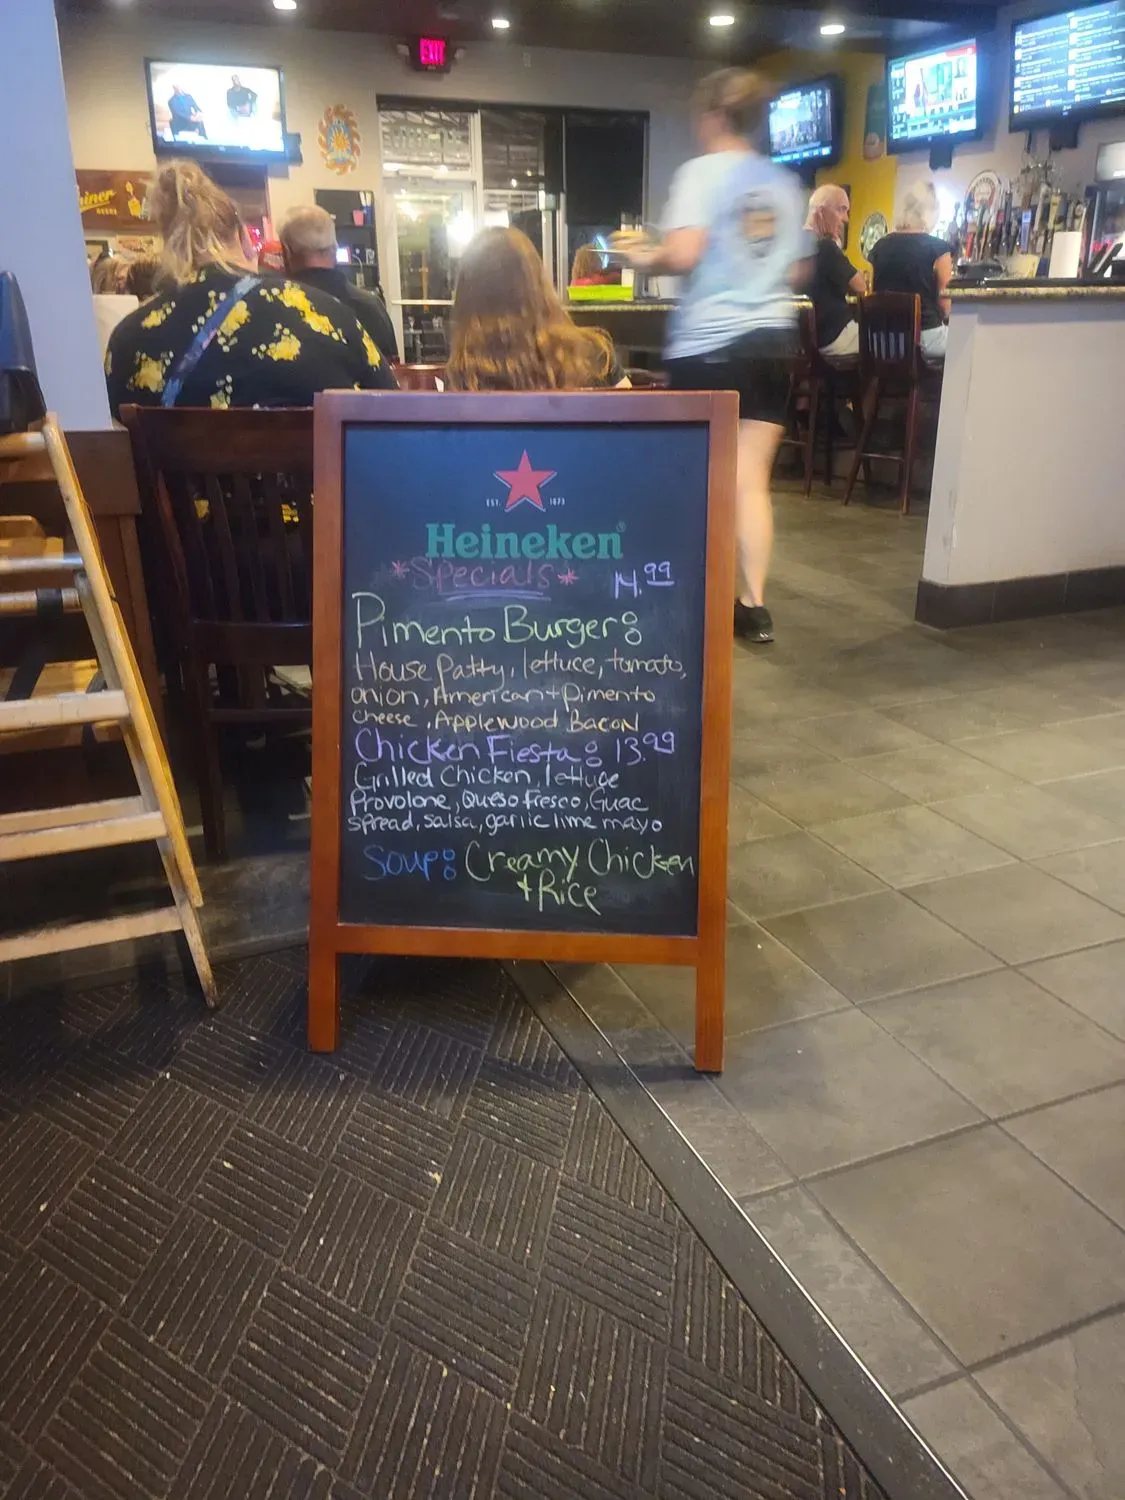 EXIT
Shiner
BEERS
EST. 1873
Heineken®
*Specials*
14.99
Pimento Burger:
House Patty, lettuce, tomato,
onion, American + Pimento
cheese, Applewood Bacon
Chicken Fiesta: 13.99
Grilled Chicken, lettuce
Provolone, Queso Fresco, Guac
spread, salsa, garlic lime mayo
Soup: Creamy Chicken
+ Rice